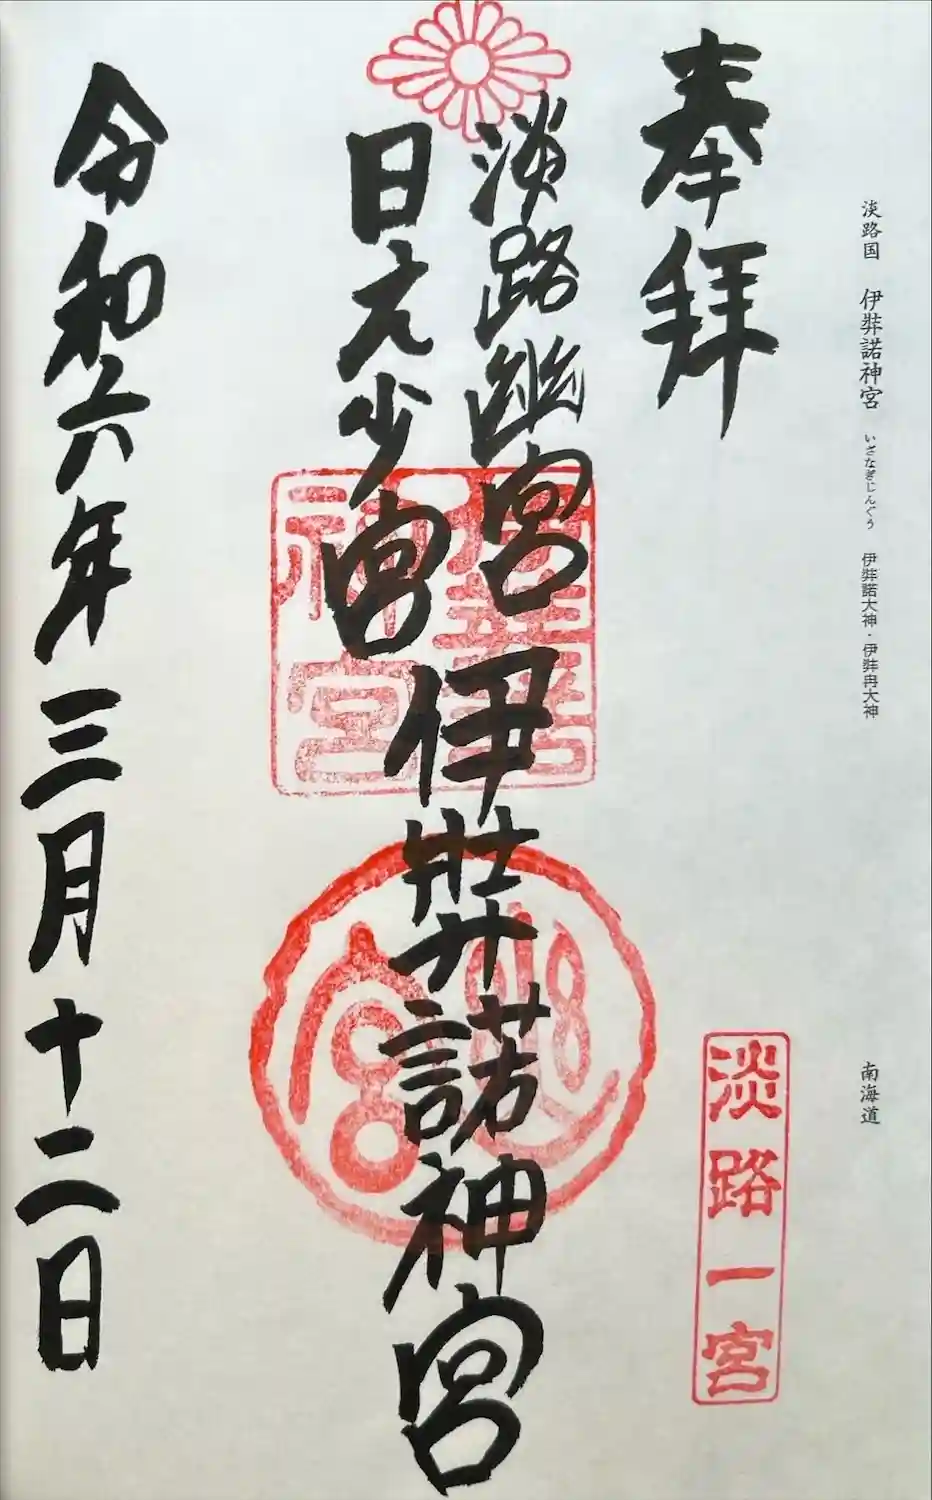 淡路国 伊弉諾神宮 いざなぎじんぐう 伊弉諾大神・伊弉冉大神 南海道
奉拝
淡路一宮
淡路幽宮
日之少宮
伊弉諾神宮
令和六年三月十二日